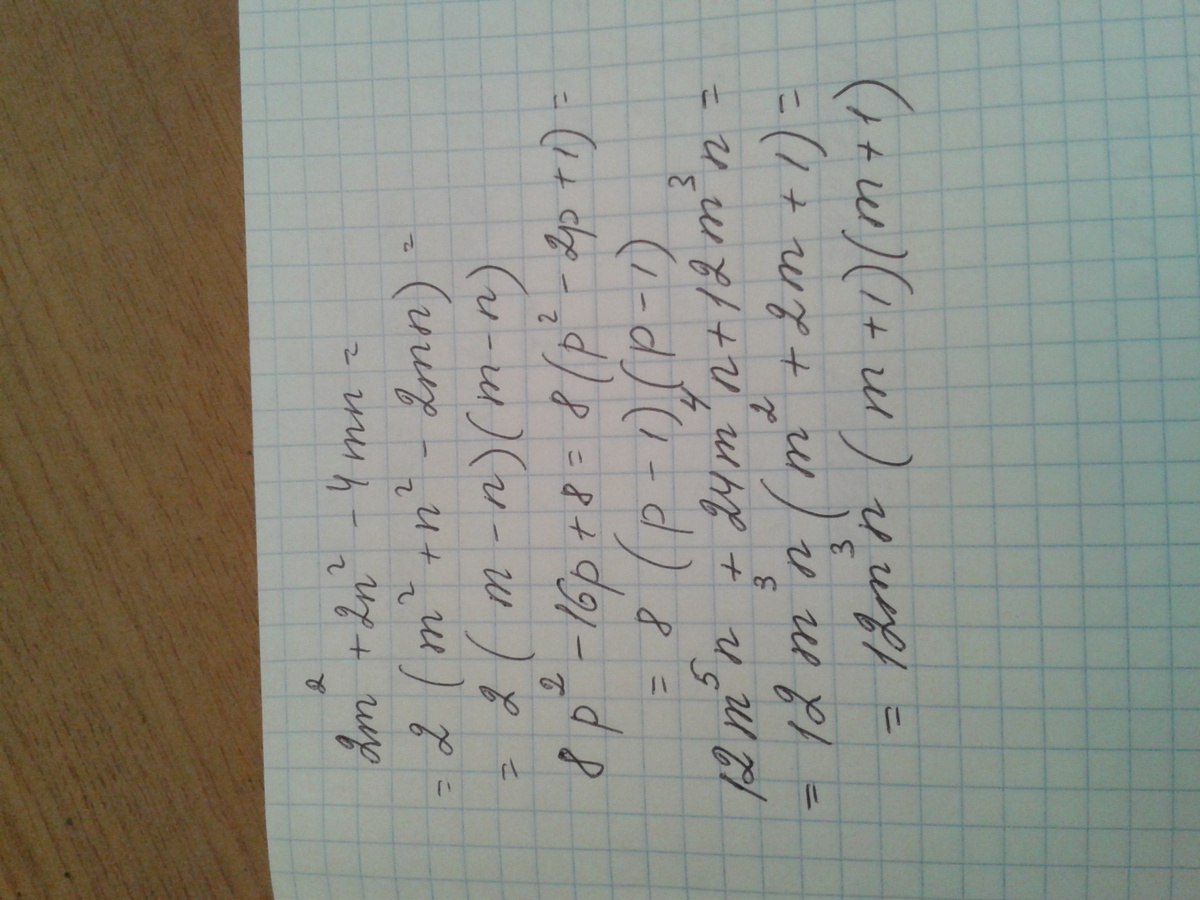 2m² + 2n² - 4mn =
= 2 (m² + n² - 2mn) =
= 2 (m - n)(m - n)
8p² - 16p + 8 = 8 (p² - 2p + 1) =
= 8 (p - 1)(p - 1)
12m⁵n + 24m⁴n + 12m³n =
= 12m³n (m² + 2m + 1) =
= 12m³n (m + 1)(m + 1)